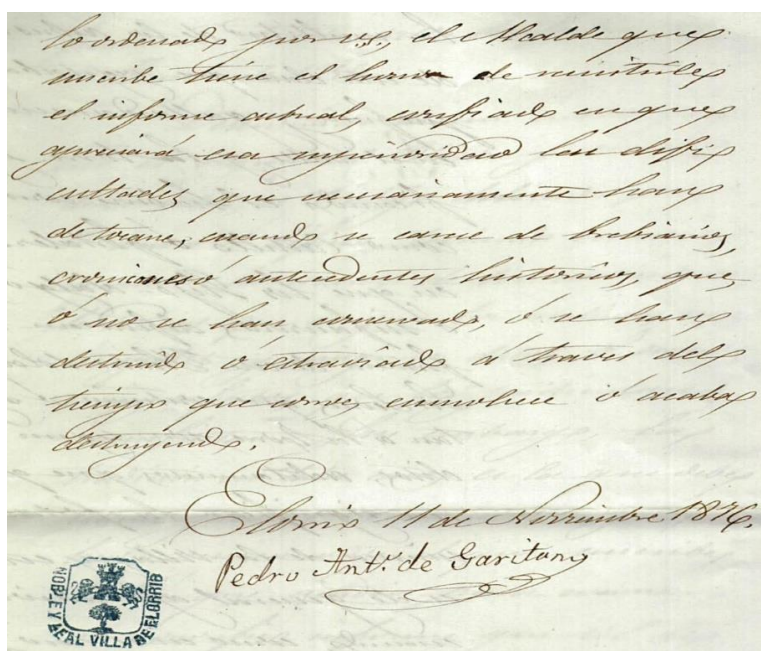 lo ordenado por V.S., el Alcalde que
suscribe tiene el honor de remitirles
el informe actual, confiado en que
apreciará su superioridad las difi
cultades que necesariamente han
de tocarse, cuando se carece de brebiarios,
cronicones ó antecedentes históricos, que,
ó no se han conservado, ó se han
destruido ó extraviado á traves del
tiempo que corroe, enmohece ó acaba
destruyendo.
Elorrio 11 de Noviembre 1876.
Pedro Ant.º de Garitano
NOBLE Y LEAL VILLA DE ELORRIO